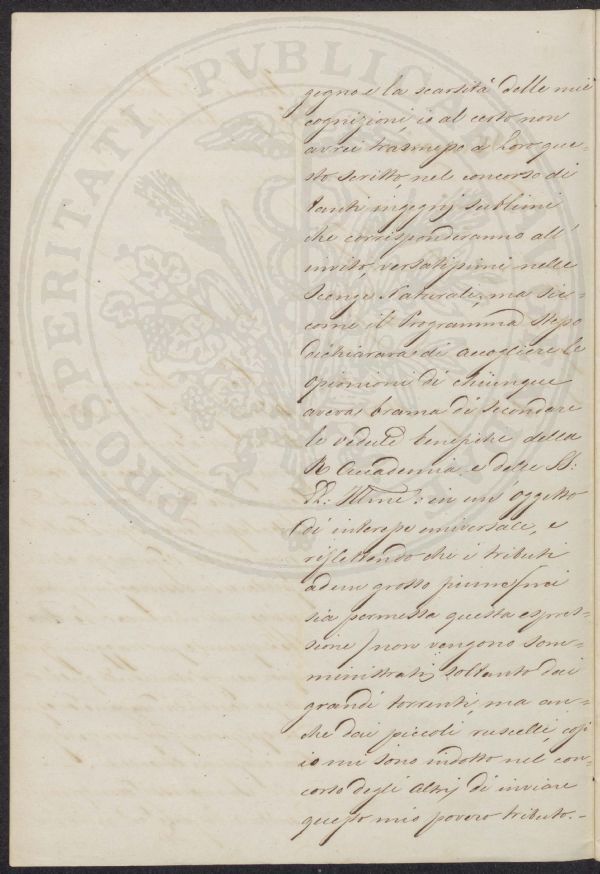 gegno e la scarsità delle mie
cognizioni io al certo non
avrei trasmesso a Loro que-
sto scritto, nel concorso di
tanti ingegnj sublimi
che corrisponderanno all'
invito versatissimi nelle
Scienze Naturali, ma sic-
come il Programma stesso
dichiarava di accogliere le
opinnioni di chiunque
averà brama di secondare
le vedute benefiche della
R. Accademia, e delle SS:
LL: Illme: in un' oggetto
di interesse universale, e
riflettendo che i tributi
ad un grosso fiume (mi
sia permessa questa espres-
sione) non vengono som-
ministrati soltanto dai
grandi torrenti, ma an-
che dai piccoli ruscelli, così
io mi sono indotto nel con-
corso degli Altrj di inviare
questo mio povero tributo.-
PROSPERITATI PVBLICAE